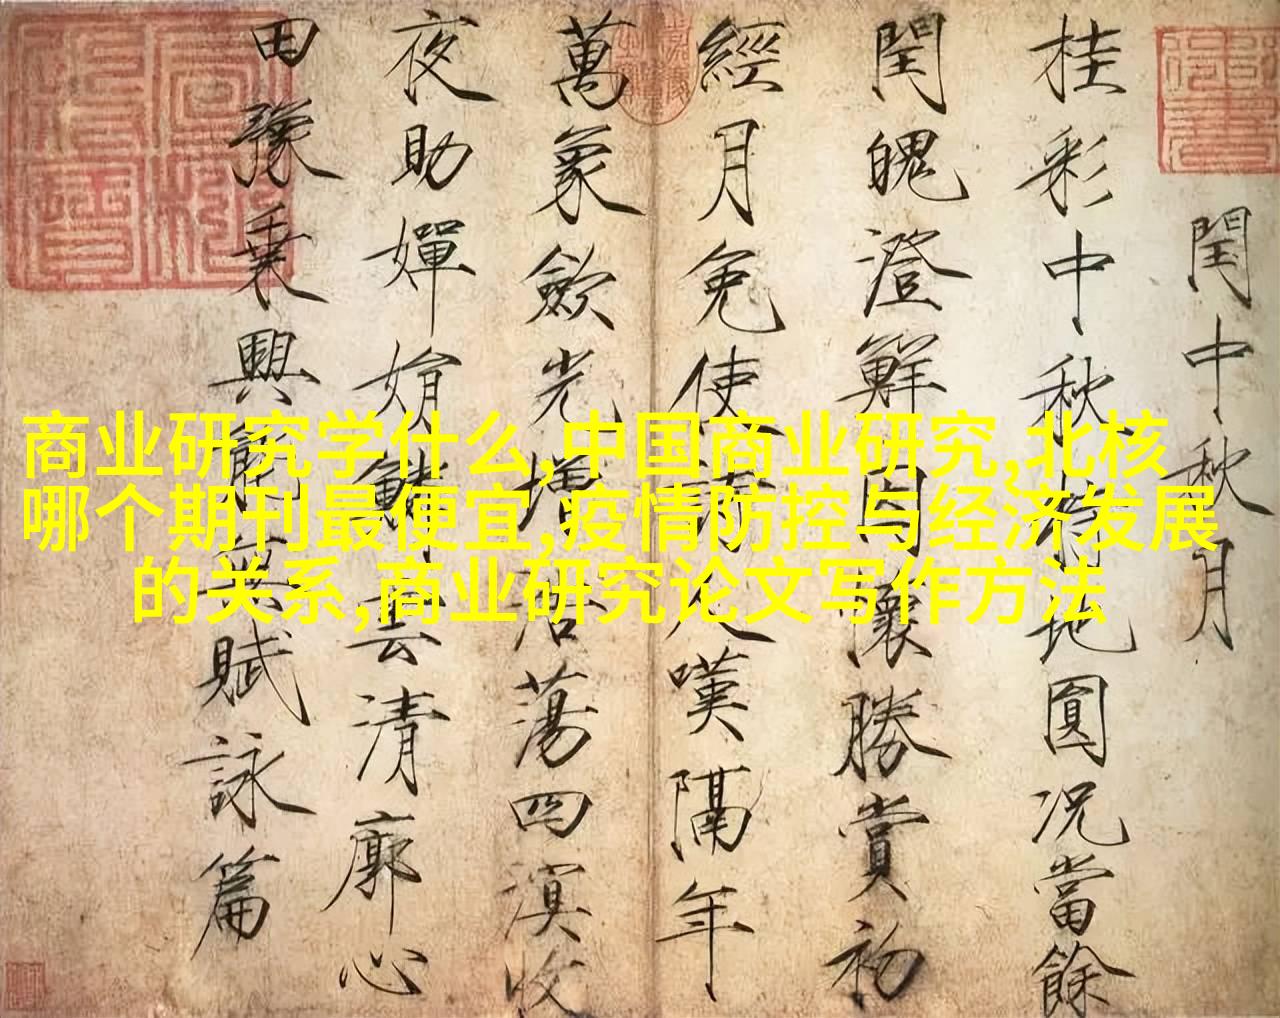 閏中秋月
桂彩中秋特地圓況當餘
閏魄澄鮮因懷勝賞初
經月免使詩人嘆隔年
萬象斂光增浩蕩四溟收
夜助嬋娟鱗雲清廓心
田豫乘興能無賦詠篇
商业研究学什么,中国商业研究,北核
哪个期刊最便宜,疫情防控与经济发展
的关系,商业研究论文写作方法